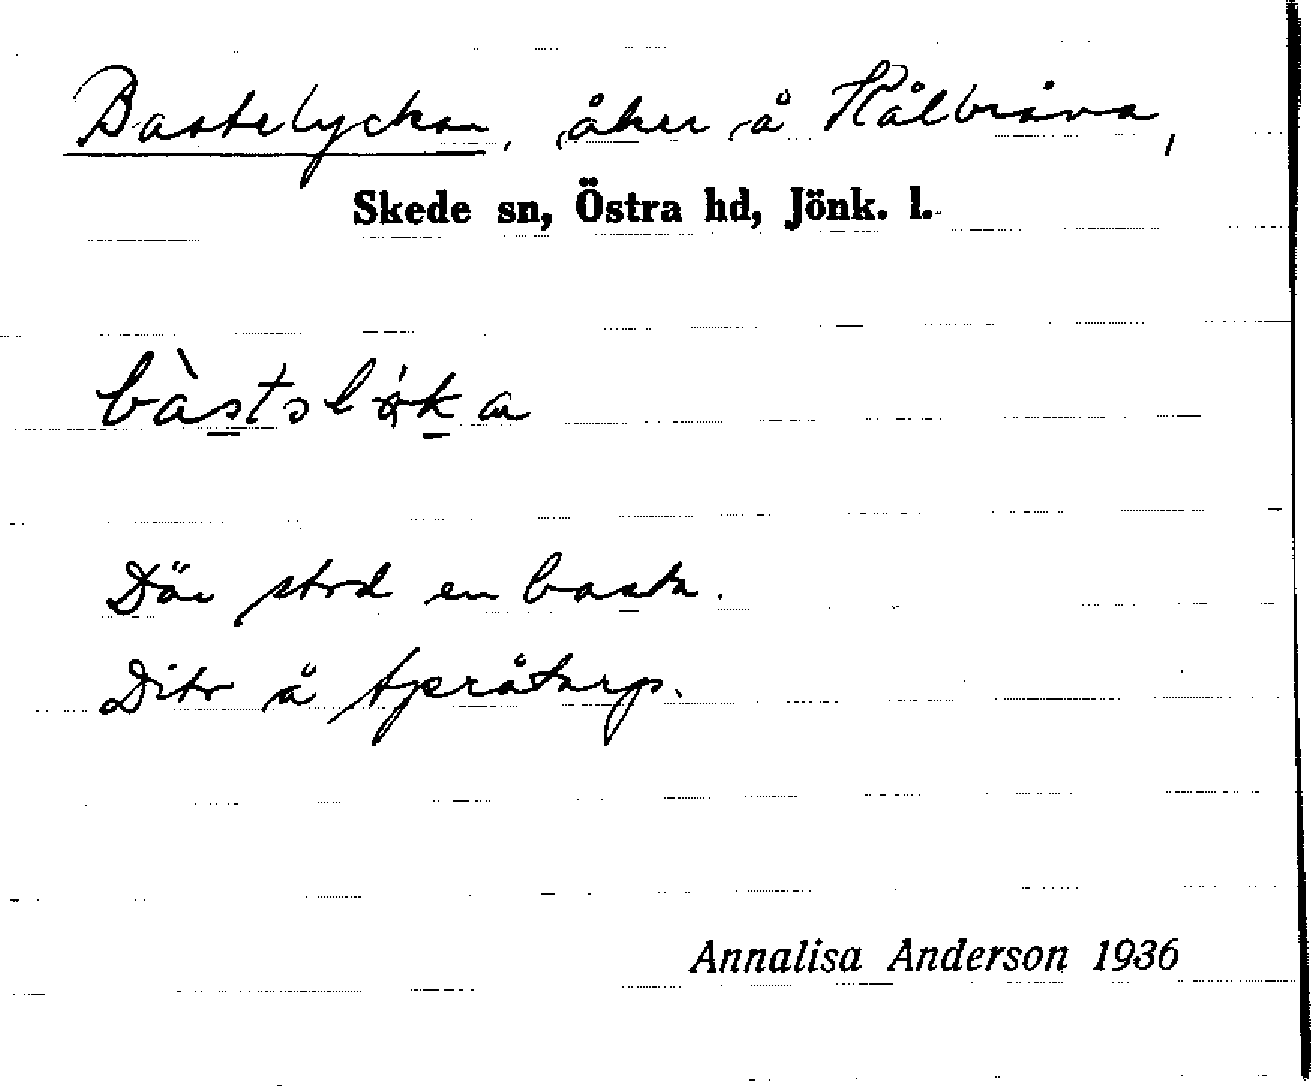 Bastelyckan, åker å Hålbräva,
Skede sn, Östra hd, Jönk. l.
bàstəløka
Där stod en basta.
Dito å
Annalisa Anderson 1936